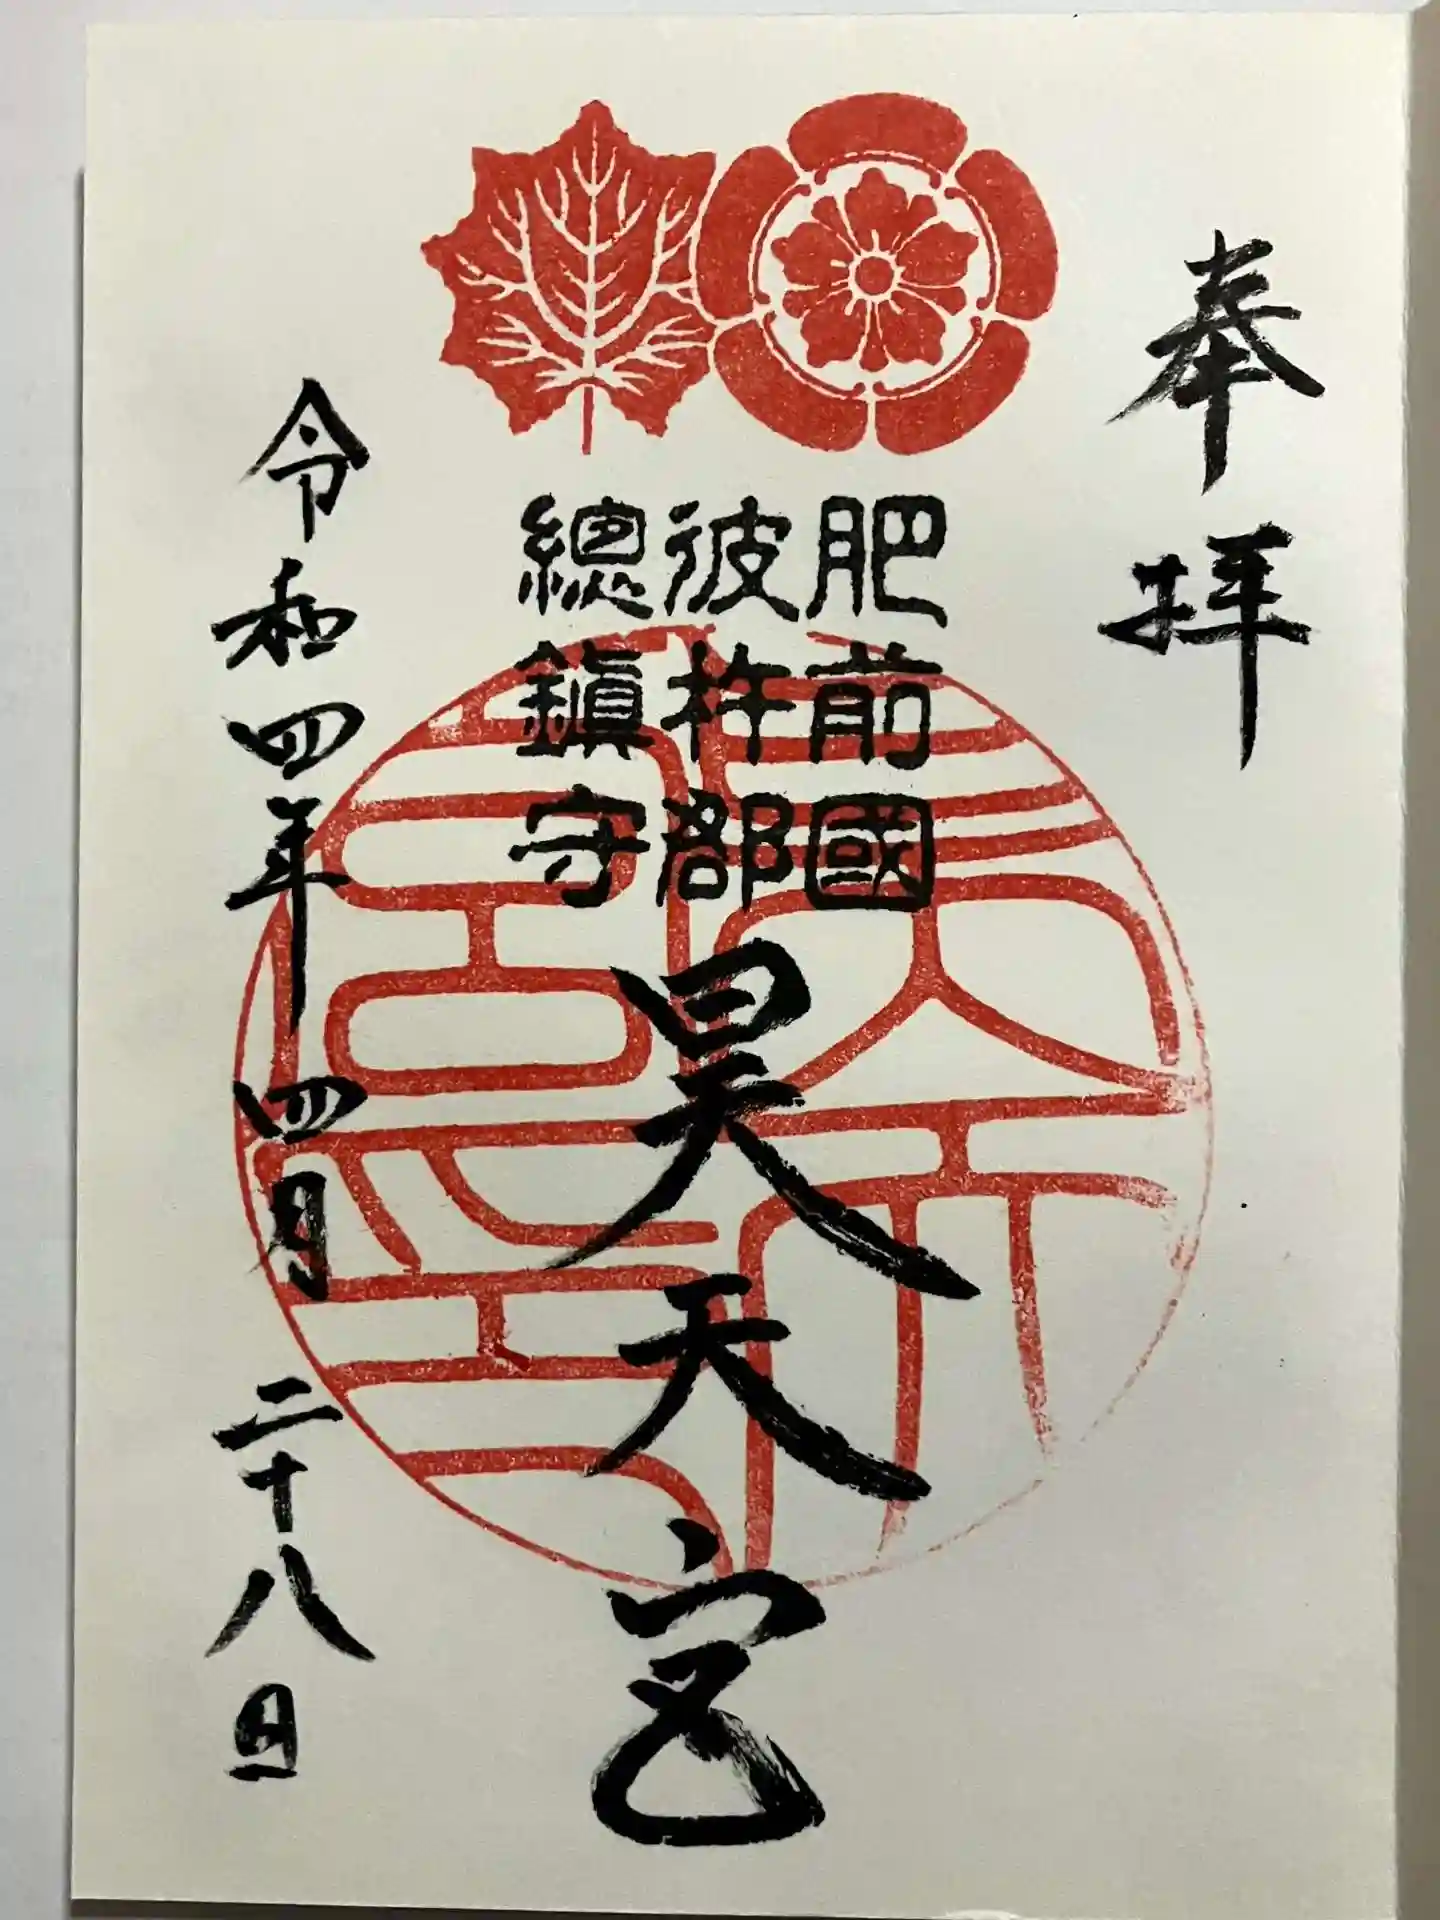 奉拝
肥前國
彼杵郡
總鎮守
昊天宮
令和四年四月二十八日